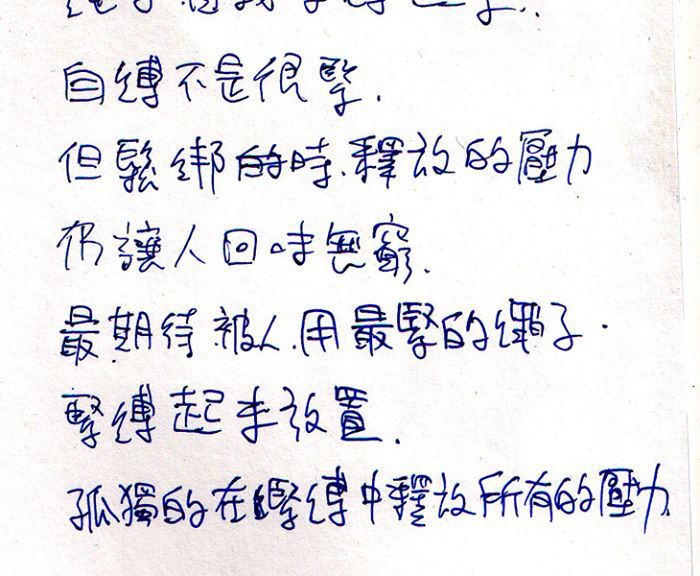 自縛不是很緊.
但鬆綁的時.釋放的壓力
仍讓人回味無窮.
最期待被人.用最緊的繩子.
緊縛起來放置.
孤獨的在緊縛中釋放所有的壓力